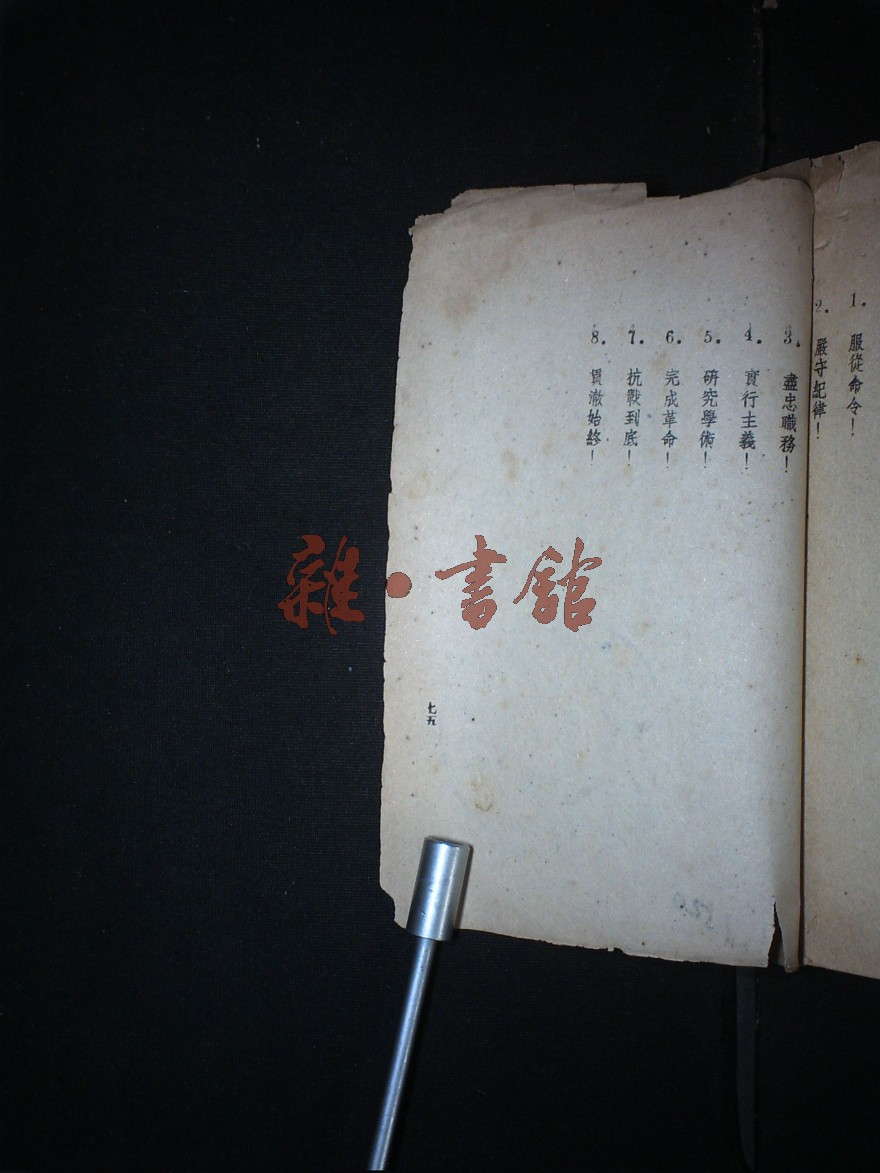 1. 服從命令!
2. 嚴守紀律!
3. 盡忠職務!
4. 實行主義!
5. 研究學術!
6. 完成革命!
7. 抗戰到底!
8. 貫澈始終!
七五
雜·書館